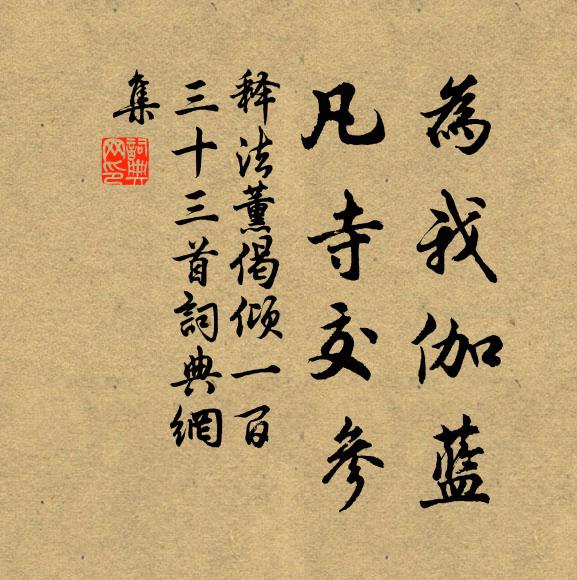 為我伽藍
凡寺交參
释法薰偈倾一百
三十三首詞典網
集
詞典網印